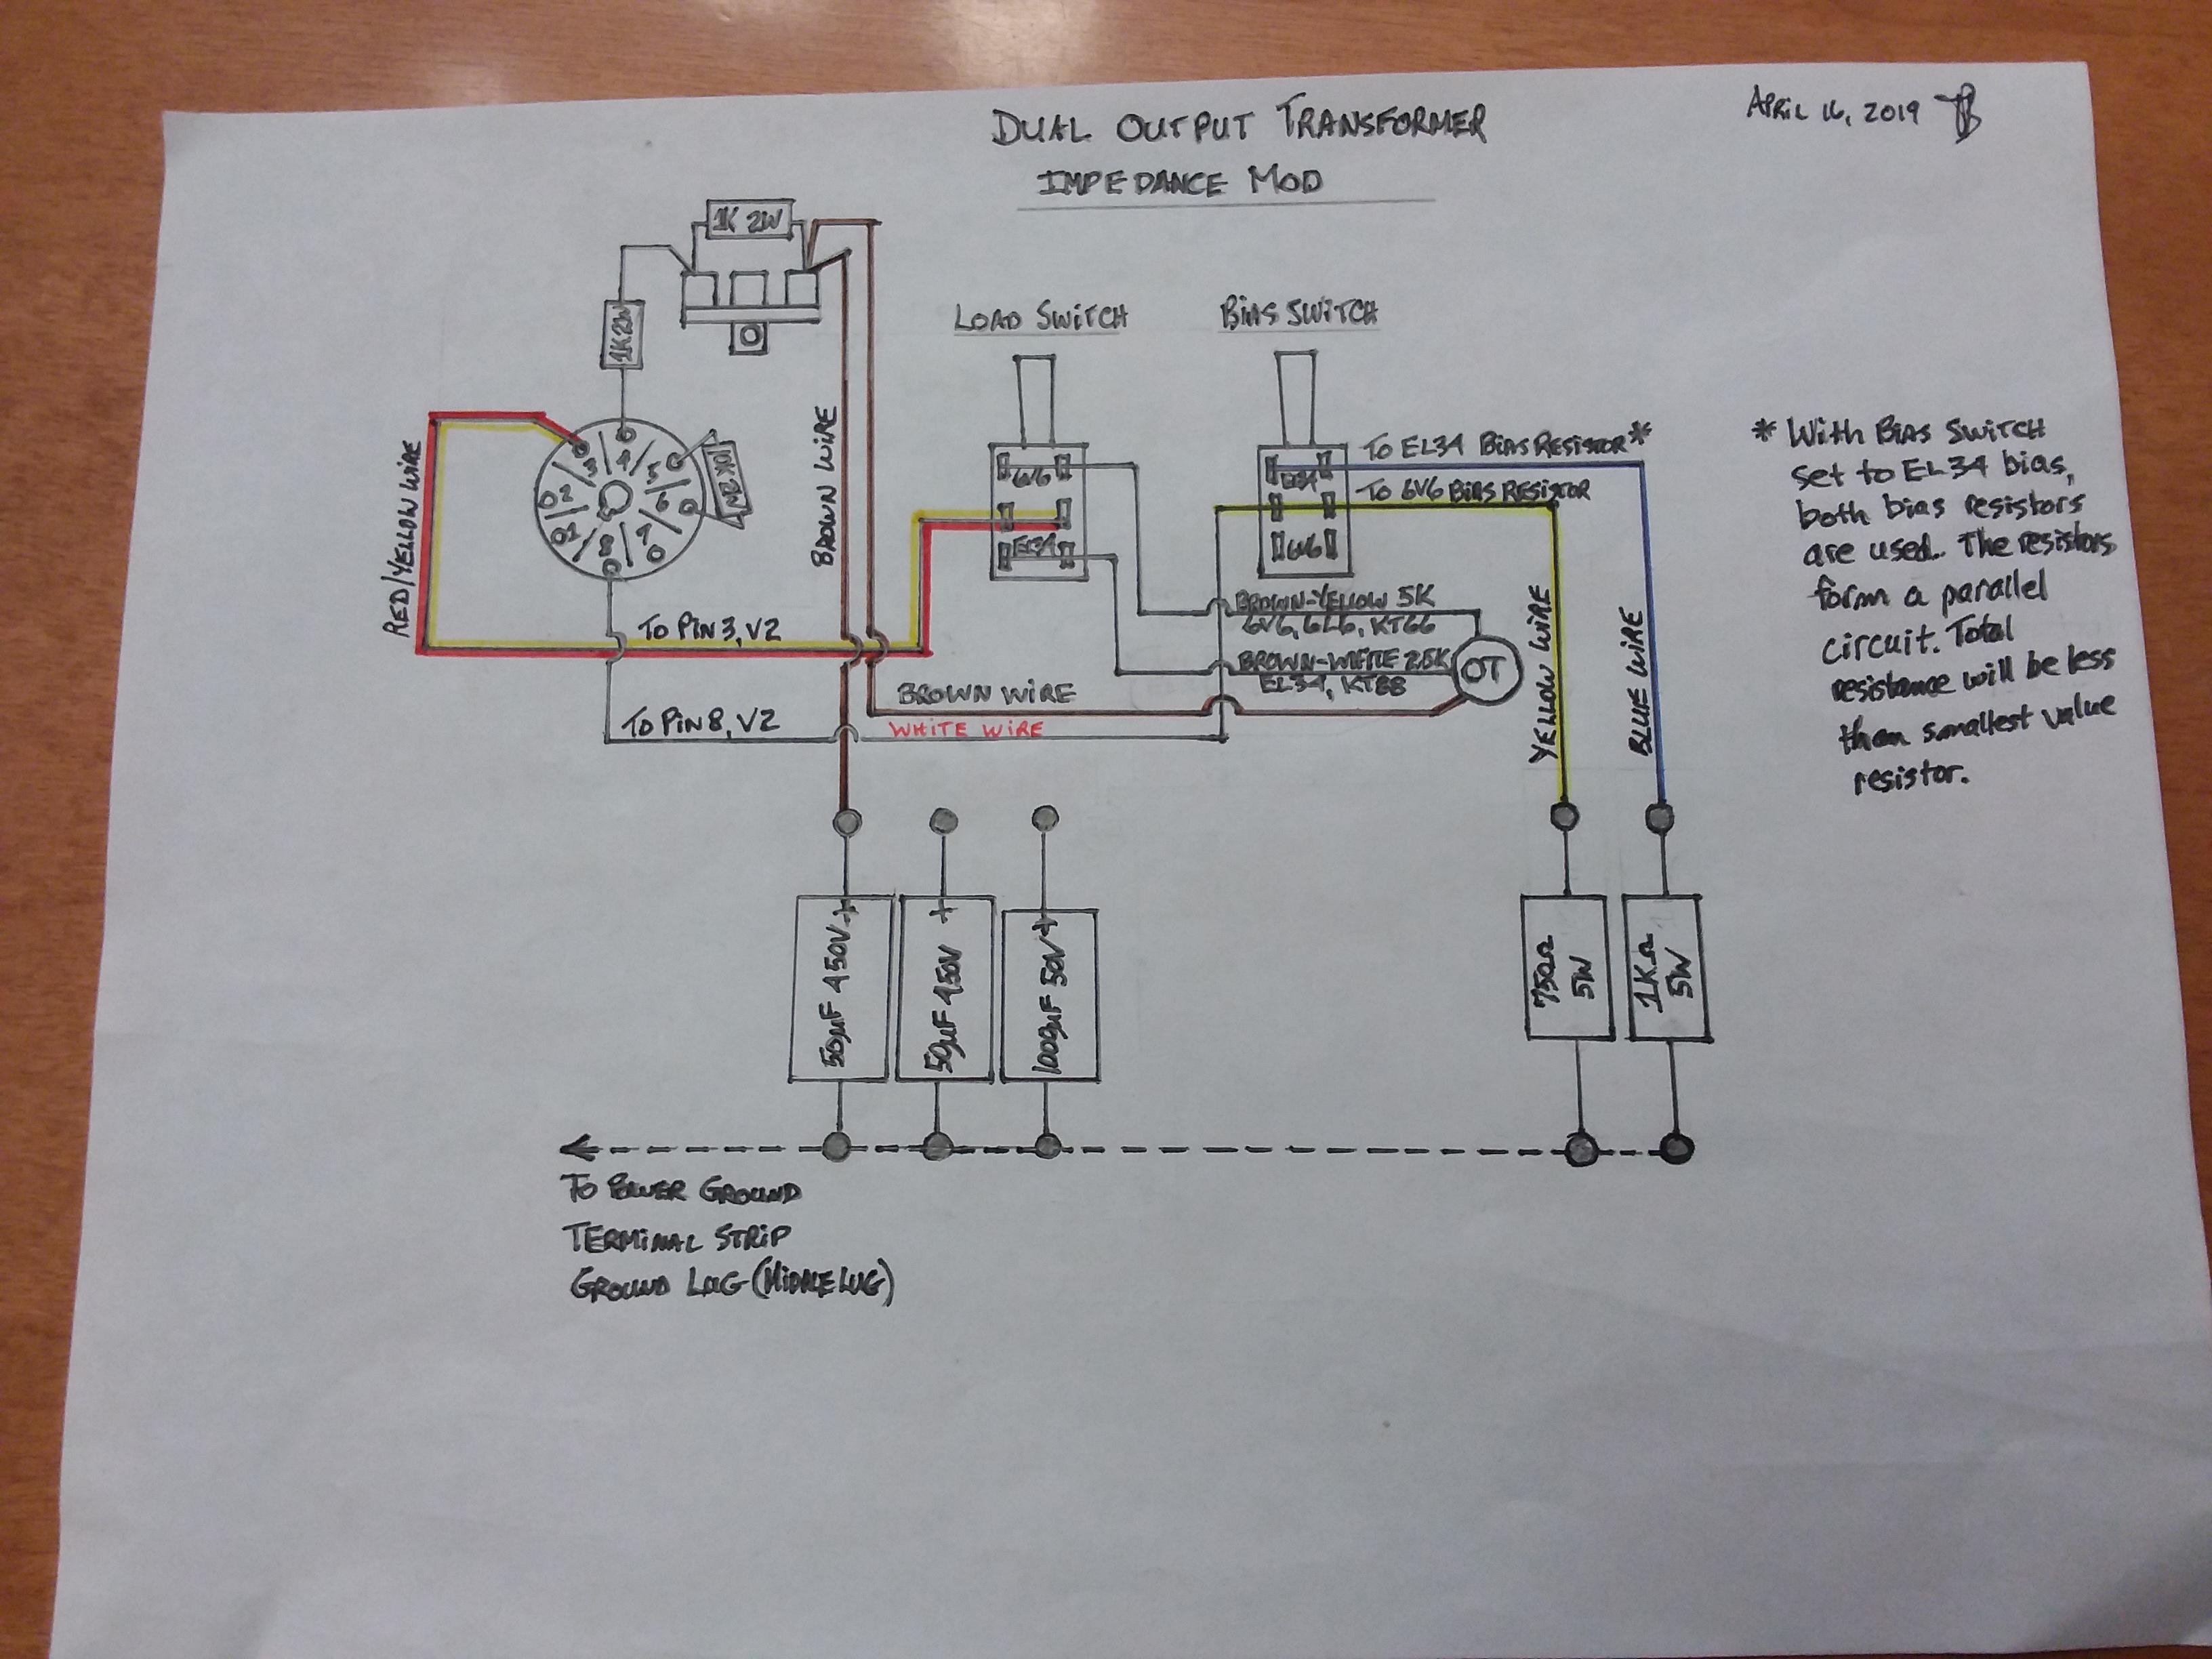 DUAL OUTPUT TRANSFORMER
IMPEDANCE MOD
APRIL 16, 2019
1K 2W
1K 2W
10K 2W
1
2
3
4
5
6
7
8
RED/YELLOW WIRE
BROWN WIRE
LOAD SWITCH
6V6
EL34
BIAS SWITCH
EL34
6V6
TO EL34 BIAS RESISTOR*
TO 6V6 BIAS RESISTOR
BROWN-YELLOW 5K
6V6, 6L6, KT66
BROWN-WHITE 2.5K
EL34, KT88
OT
TO PIN 3, V2
BROWN WIRE
WHITE WIRE
TO PIN 8, V2
YELLOW WIRE
BLUE WIRE
* With BIAS SWITCH
set to EL34 bias,
both bias resistors
are used. The resistors
form a parallel
circuit. Total
resistance will be less
than smallest value
resistor.
50µF 450V +
50µF 450V +
100µF 50V +
750Ω
5W
1KΩ
5W
TO POWER GROUND
TERMINAL STRIP
GROUND LUG (MIDDLE LUG)